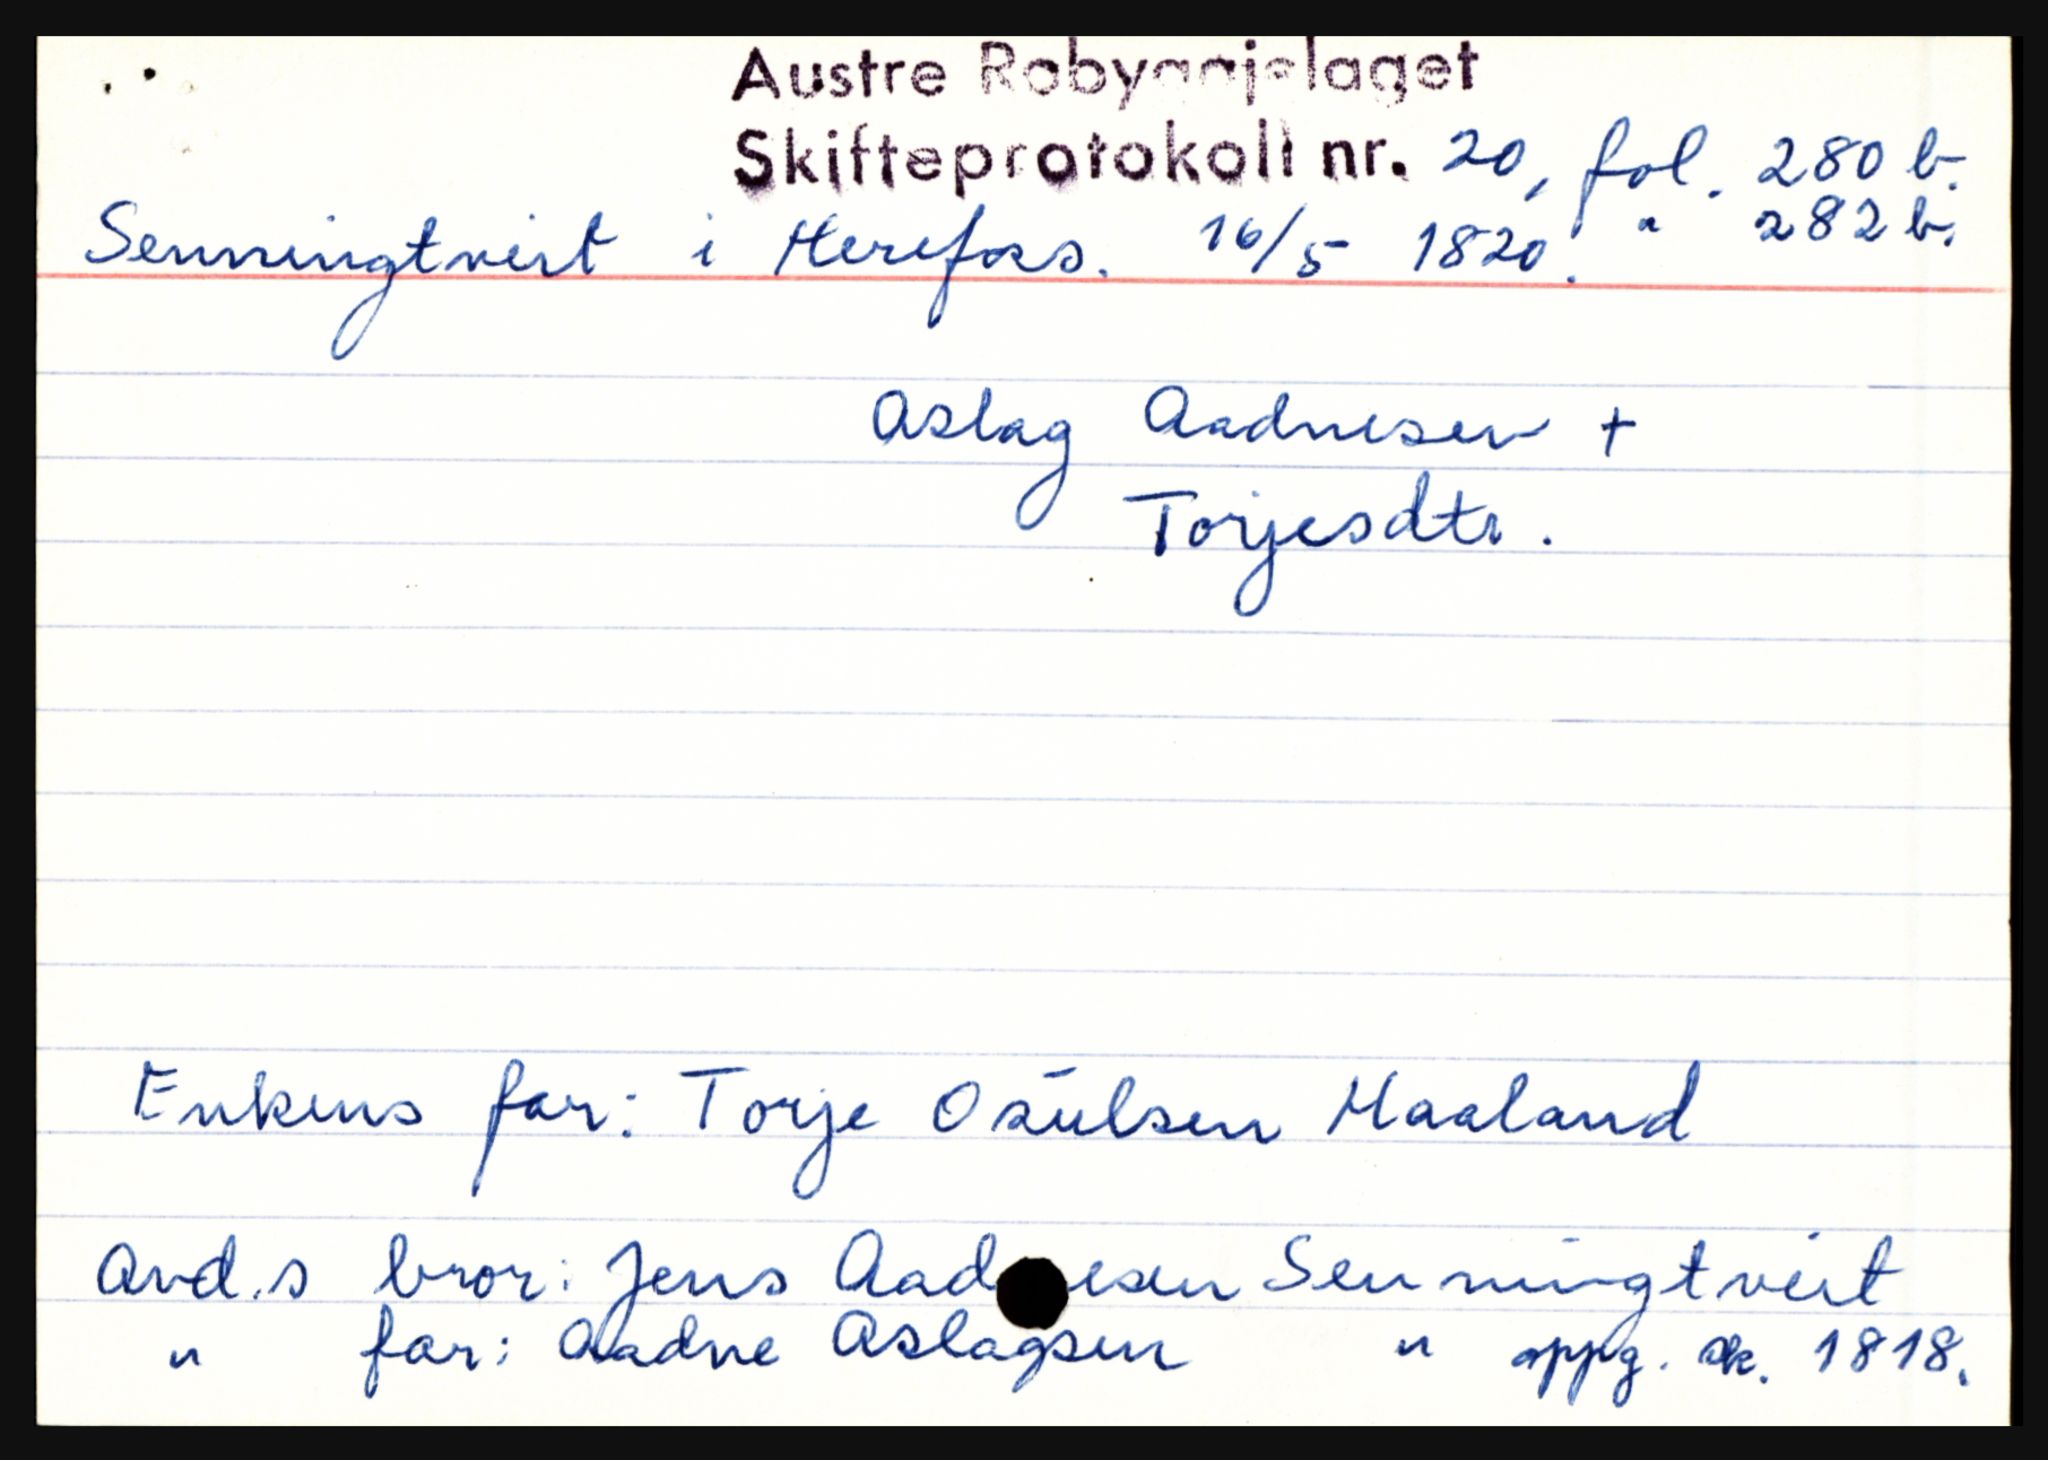 Austre Robyggjelaget
Skifteprotokoll nr. 20, fol. 280 b.
Senningtveit i Herefoss. 16/5 1820. " 282 b.
Aslag Aadnesen +
Torjesdtr.
Enkens far: Torje Osulsen Haaland
Avd.s bror: Jens Aadnesen Senningtveit
" far: Aadne Aslagsen " oppg. sk. 1818.